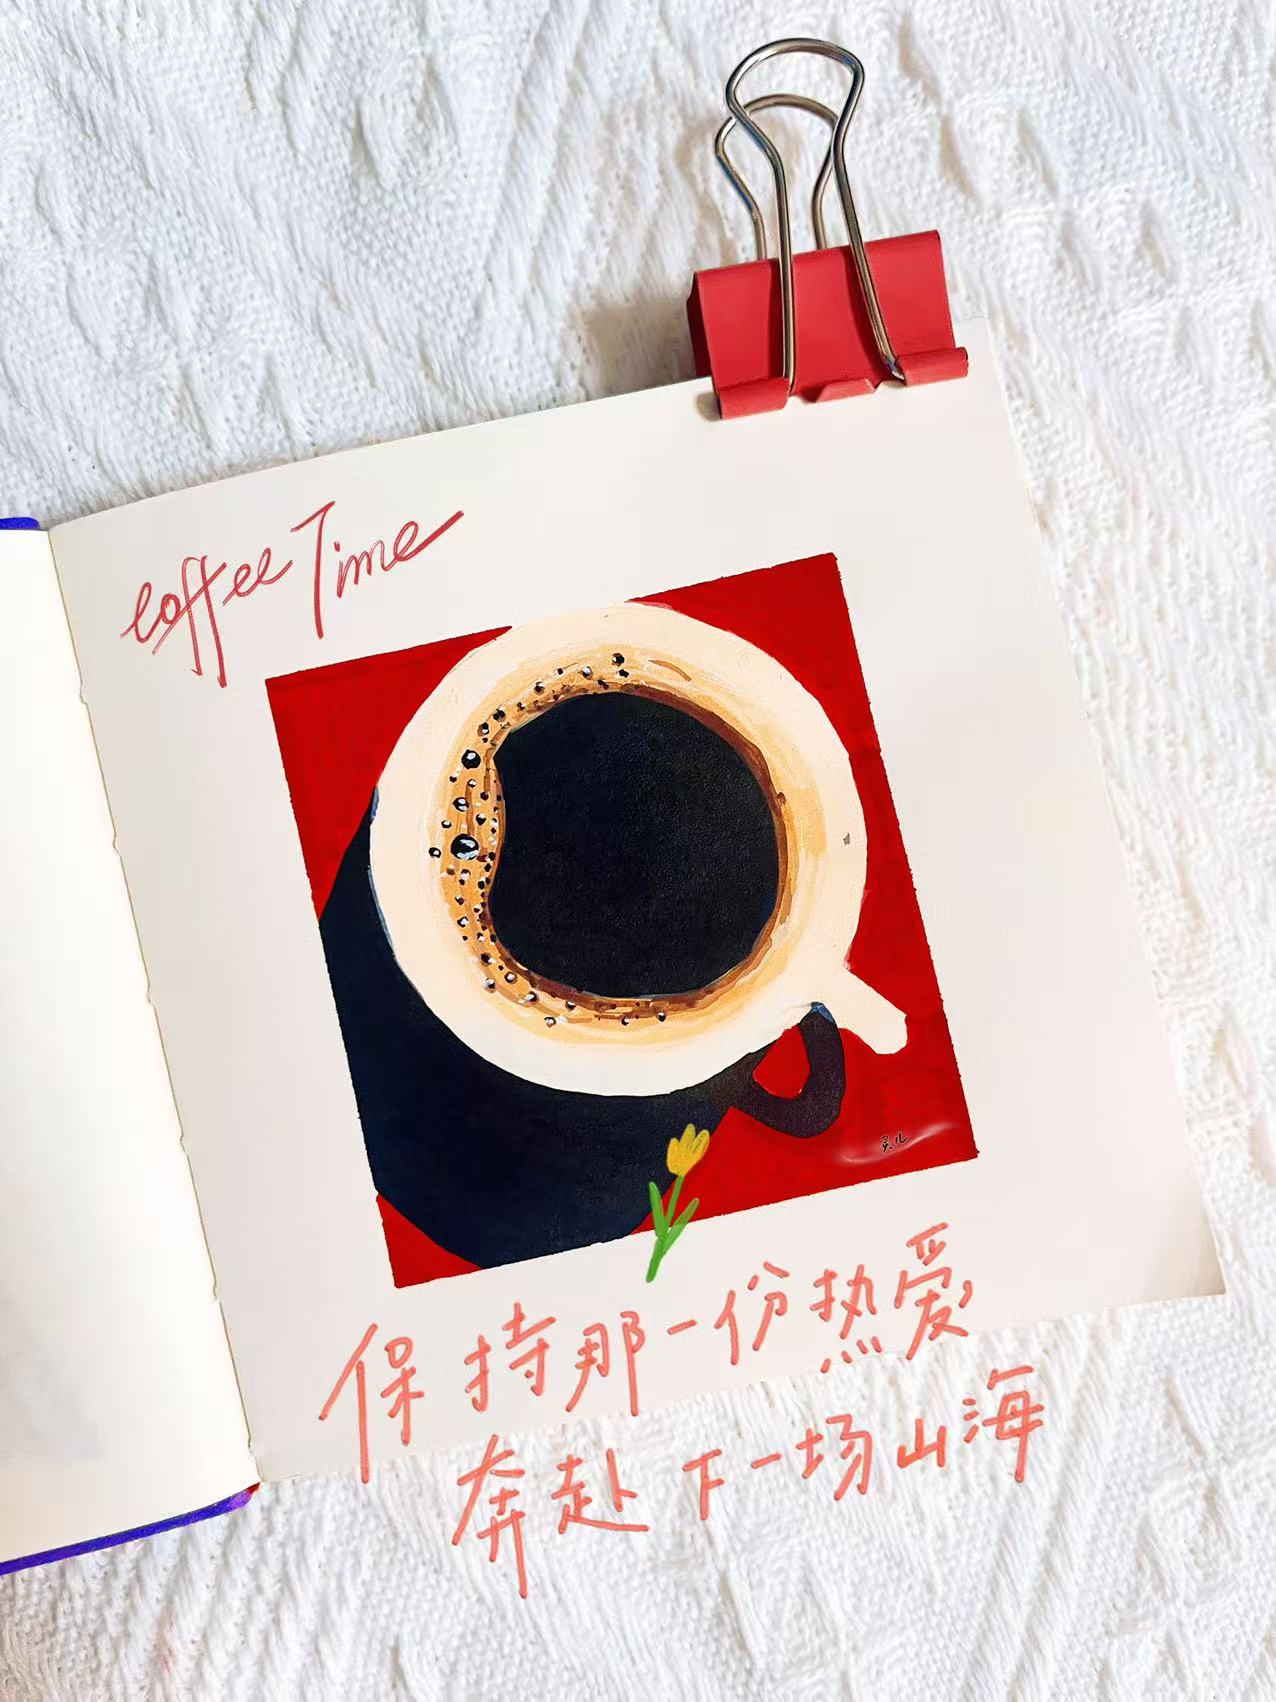 Coffee Time
灵儿
保持那一份热爱
奔赴下一场山海